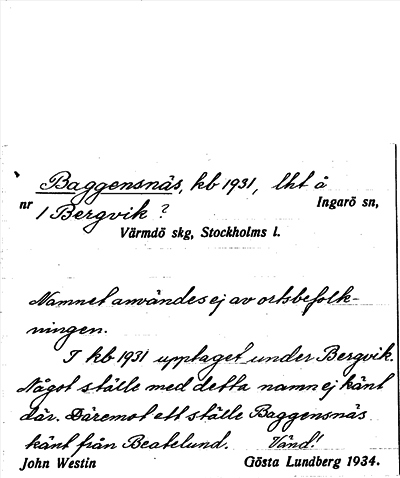 Baggensnäs, kb 1931, lht å
nr 1 Bergvik? Ingarö sn,
Värmdö skg, Stockholms l.
Namnet användes ej av ortsbefolk-
ningen.
I kb 1931 upptaget under Bergvik.
Något ställe med detta namn ej känt
där. Däremot ett ställe Baggensnäs
känt från Beatelund. Vänd!
John Westin Gösta Lundberg 1934.